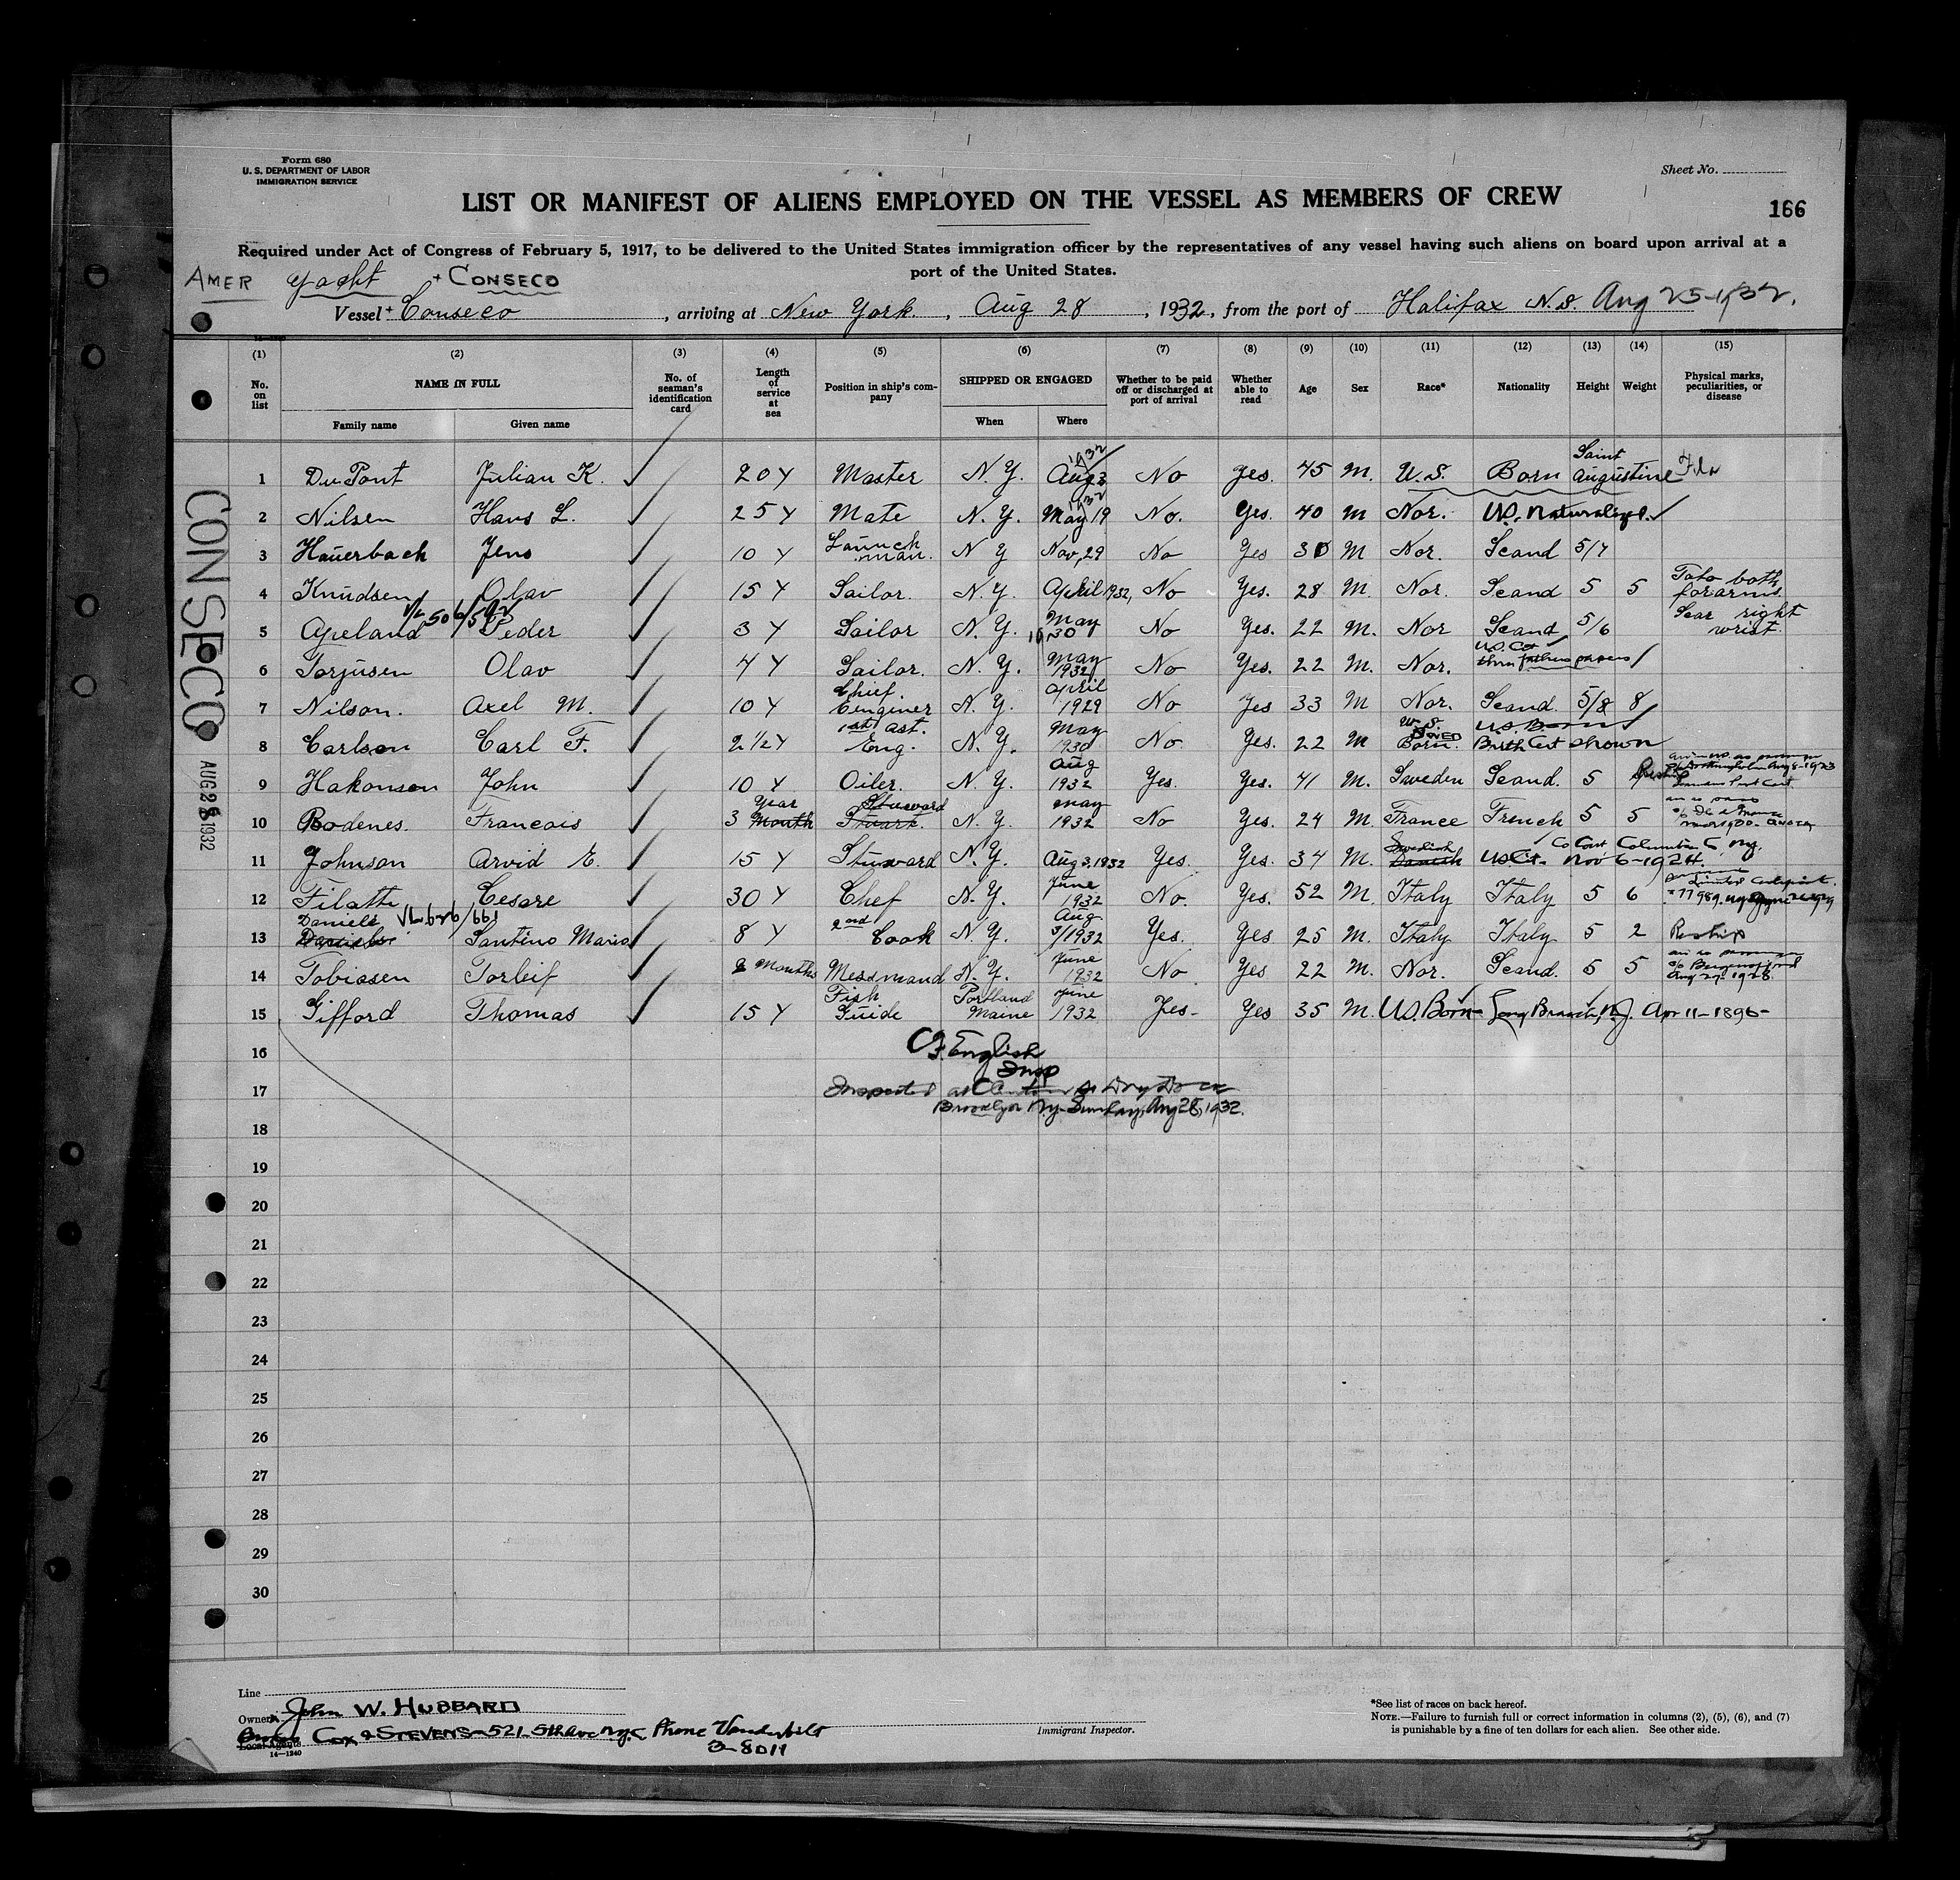 Form 680
U. S. DEPARTMENT OF LABOR
IMMIGRATION SERVICE
Sheet No.
LIST OR MANIFEST OF ALIENS EMPLOYED ON THE VESSEL AS MEMBERS OF CREW
166
Required under Act of Congress of February 5, 1917, to be delivered to the United States immigration officer by the representatives of any vessel having such aliens on board upon arrival at a
port of the United States.
AMER Yacht + CONSECO
Vessel + Conseco, arriving at New York, Aug 28, 1932, from the port of Halifax N.S. Aug 25-1932.
(1) (2) (3) (4) (5) (6) (7) (8) (9) (10) (11) (12) (13) (14) (15)
No. on list NAME IN FULL Family name Given name No. of seaman's identification card Length of service at sea Position in ship's company SHIPPED OR ENGAGED When Where Whether to be paid off or discharged at port of arrival Whether able to read Age Sex Race* Nationality Height Weight Physical marks, peculiarities, or disease
1 DuPont Julian K. 20 Y Master N.Y. Aug 3 1932 No Yes. 45 M. U.S. Born Saint Augustine Fla
2 Nilsen Hans L. 25 Y Mate N.Y. May 19 1932 No. Yes. 40 M Nor. U.S. Naturalized.
3 Hauerbach Jens 10 Y Launch man. N Y Nov, 29 No Yes 30 M Nor. Scand 5/7
4 Knudsen Olav 15 Y Sailor. N.Y. April 1932, No Yes. 28 M. Nor. Scand 5 5 Tato both forarms
5 Apeland Peder 3 Y Sailor N.Y. May 1930 No Yes. 22 M. Nor Scand 5/6 Scar right wrist.
6 Torjusen Olav 4 Y Sailor. N.Y. May 1932 No Yes. 22 M. Nor. US Cit thru fathers papers
7 Nilson. Axel M. 10 Y Chief. Enginer N.Y. April 1929 No Yes 33 M Nor. Scand. 5/8 8
8 Carlson Carl F. 2 1/2 Y 1st ast. Eng. N.Y. May 1930 No. Yes. 22 M U.S. Born. U.S. Born Birth Cert shown
9 Hakonson John 10 Y Oiler. N.Y. Aug 1932 Yes. Yes. 41 M. Sweden Scand. 5
10 Bodenes. Francois 3 Year Month Steward Stuart. N.Y. May 1932 No Yes. 24 M. France French 5 5
11 Johnson Arvid E. 15 Y Stuward N.Y. Aug 3, 1932 Yes. Yes. 34 M. Swedish Danish US Cit. Co Court Columbia Co, NY. Nov 6-1924.
12 Filatti Cesare 30 Y Chef N.Y. June 1932 No. Yes. 52 M. Italy Italy 5 6
13 Daniele VL 626/661 Santino Mario 8 Y 2nd Cook N.Y. Aug 3/1932 Yes. Yes 25 M. Italy Italy 5 2 Reship
14 Tobiasen Torleif 9 Months Messmand N.Y. June 1932 No Yes 22 M. Nor. Scand. 5 5 Aug 27-1928
15 Gifford Thomas 15 Y Fish Guide Portland Maine June 1932 Yes- Yes 35 M. US. Born- Long Branch, N.J. Apr 11-1896-
16
17
18
19
20
21
22
23
24
25
26
27
28
29
30
C.F. English
Insp
Inspected at Dry Dock
Brooklyn N.Y. Sunday, Aug 28, 1932.
CONSECO
AUG 28 1932
Line
Owner John W. HUBBARD
Cox & STEVENS-521-5th Ave NYC Phone Vanderbilt
3-8011
Local Agents
14-1240
Immigrant Inspector.
*See list of races on back hereof.
NOTE.—Failure to furnish full or correct information in columns (2), (5), (6), and (7)
is punishable by a fine of ten dollars for each alien. See other side.